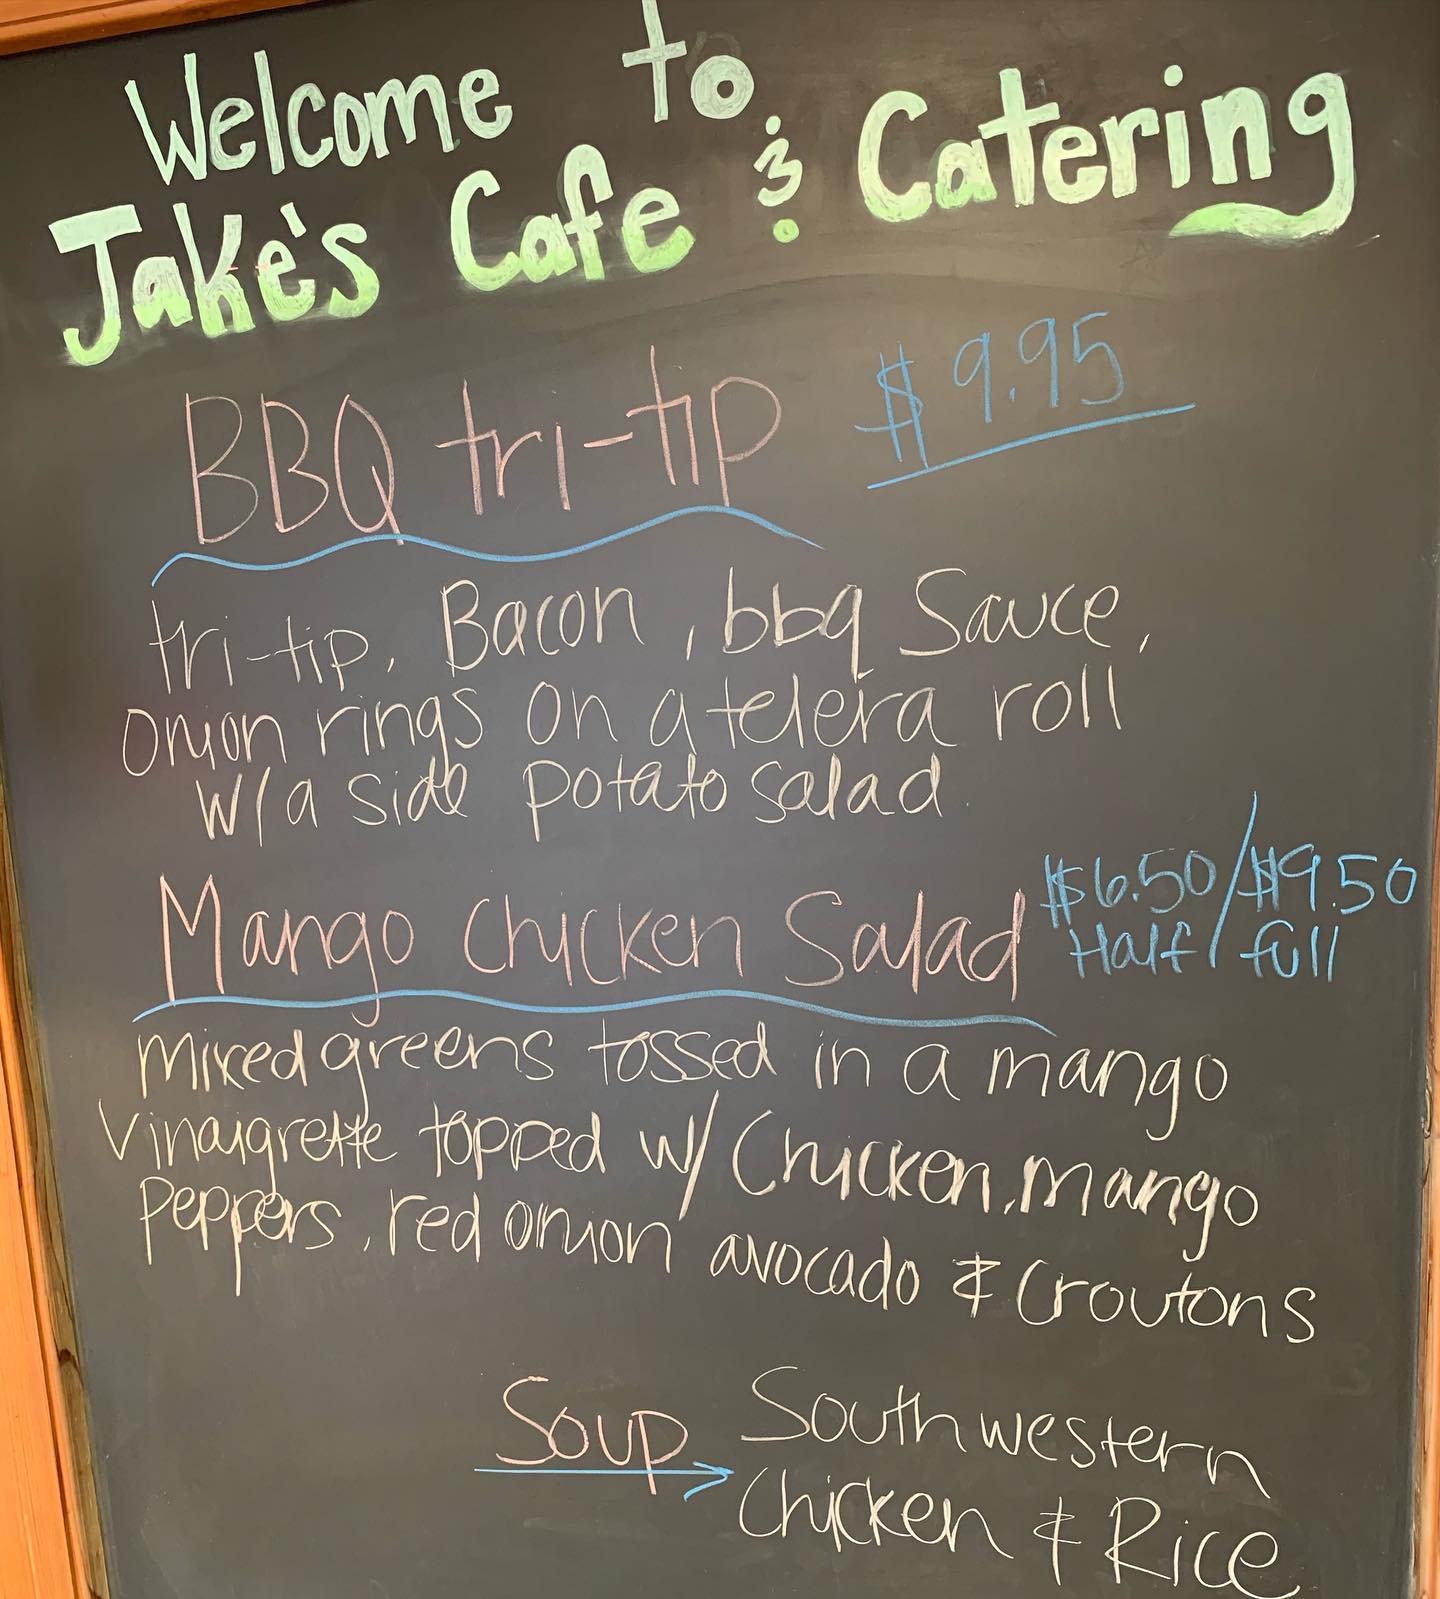 Welcome to
Jake's Cafe & Catering
BBQ tri-tip $9.95
tri-tip, Bacon, bbq Sauce,
onion rings on a telera roll
w/a side potato salad
Mango Chicken Salad $6.50/$9.50
Half/full
Mixed greens tossed in a mango
Vinaigrette topped w/ Chicken, mango
Peppers, red onion avocado & Croutons
Soup → Southwestern
Chicken & Rice